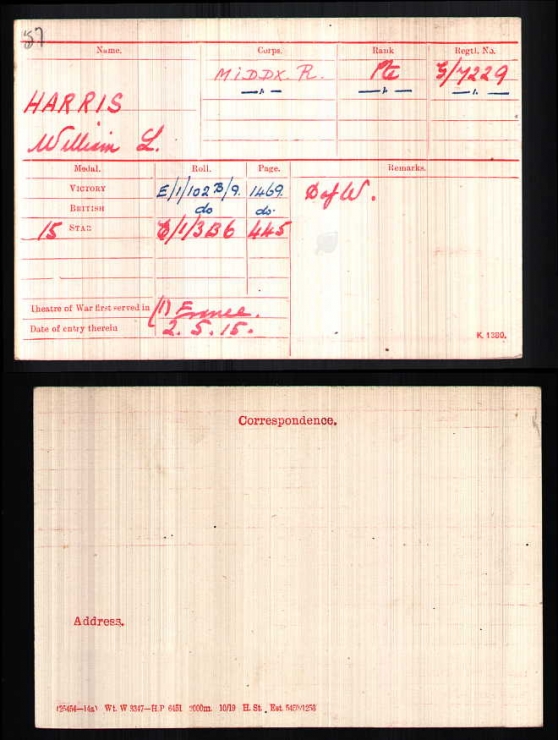 57
Name. Corps. Rank Regtl. No.
MIDDX. R. Pte 5/7229
—„— —„— —„—
HARRIS
William L.
Medal. Roll. Page. Remarks.
VICTORY E/1/102 B/9. 1469. D of W.
BRITISH do do.
15 STAR E/1/3 B6 445
Theatre of War first served in (1) France.
Date of entry therein 2.5.15.
K. 1380.
Correspondence.
Address.
Wt. W 3347—H.P 6451 10/19 H. St.